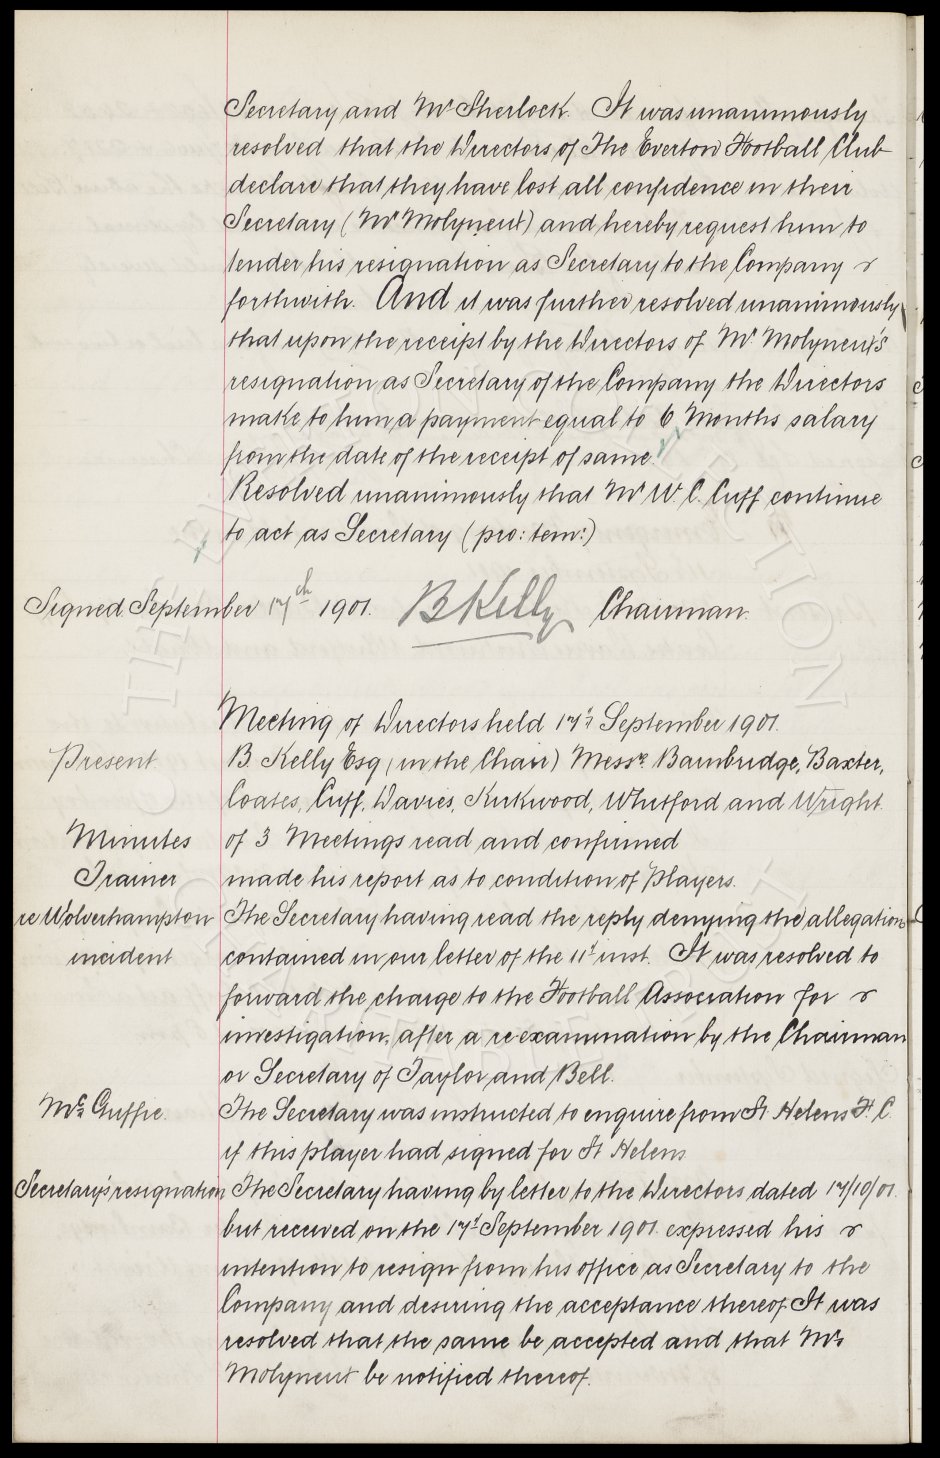 Secretary and Mr Sherlock. It was unanimously
resolved that the Directors of The Everton Football Club
declare that they have lost all confidence in their
Secretary (Mr Molyneux) and hereby request him to
tender his resignation as Secretary to the Company
forthwith. And it was further resolved unanimously
that upon the receipt by the Directors of Mr Molyneux's
resignation as Secretary of the Company the Directors
make to him a payment equal to 6 Months salary
from the date of the receipt of same.
Resolved unanimously that Mr W. C. Cuff continue
to act as Secretary (pro: tem:)
Signed September 17th 1901. B Kelly Chairman.
Meeting of Directors held 17th September 1901.
Present. B. Kelly Esq (in the Chair) Messrs. Bainbridge, Baxter,
Coates, Cuff, Davies, Kirkwood, Whitford and Wright.
Minutes of 3 Meetings read and confirmed
Trainer made his report as to condition of Players.
re Wolverhampton The Secretary having read the reply denying the allegations
incident contained in our letter of the 11th inst. It was resolved to
forward the charge to the Football Association for
investigation, after a re examination by the Chairman
or Secretary of Taylor and Bell.
McGuffie. The Secretary was instructed to enquire from St Helens F. C.
if this player had signed for St Helens
Secretary's resignation The Secretary having by letter to the Directors dated 17/10/01.
but received on the 17th September 1901. expressed his
intention to resign from his office as Secretary to the
Company and desiring the acceptance thereof. It was
resolved that the same be accepted and that Mr
Molyneux be notified thereof.